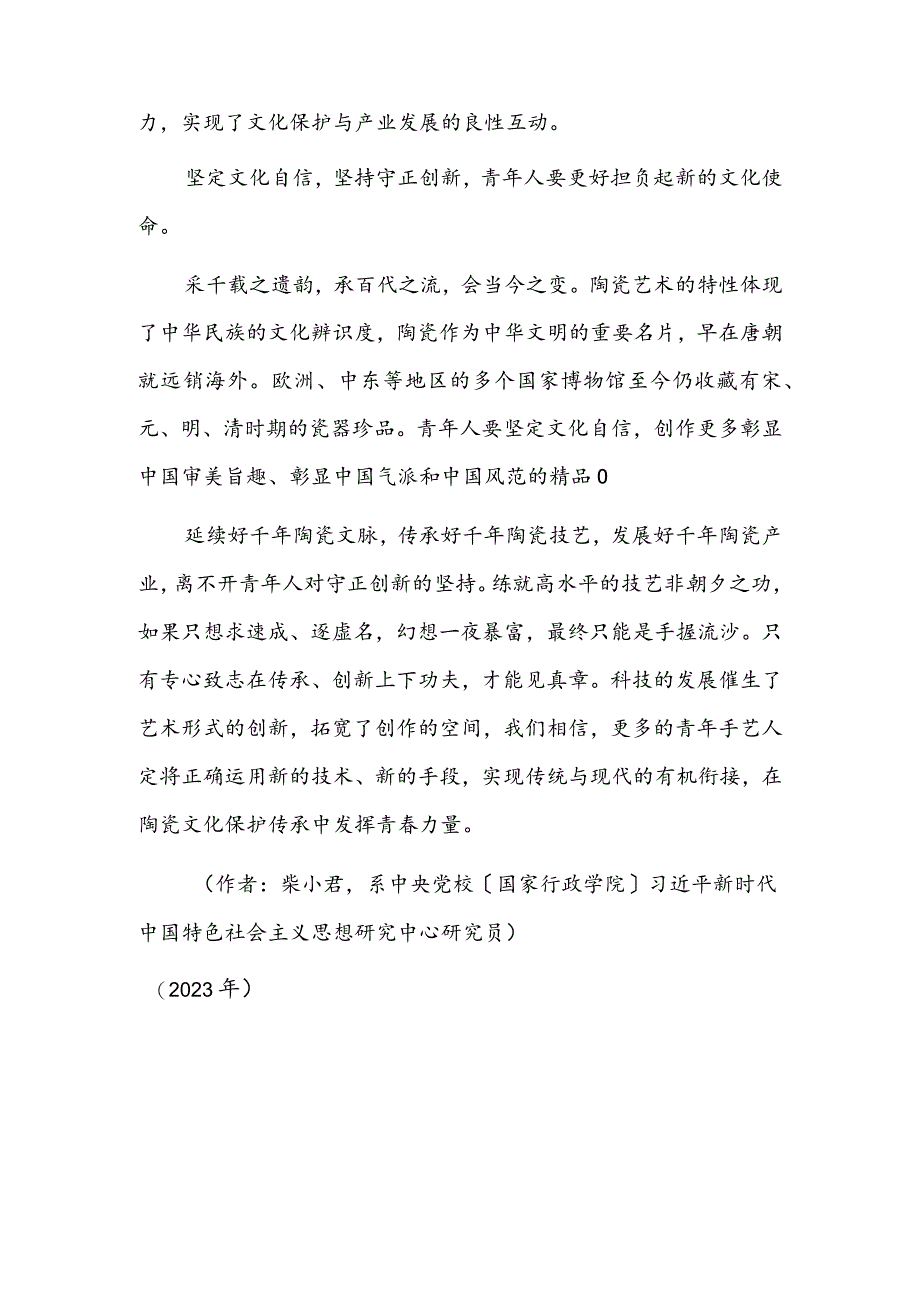 力，实现了文化保护与产业发展的良性互动。
坚定文化自信，坚持守正创新，青年人要更好担负起新的文化使
命。
采千载之遗韵，承百代之流，会当今之变。陶瓷艺术的特性体现
了中华民族的文化辨识度，陶瓷作为中华文明的重要名片，早在唐朝
就远销海外。欧洲、中东等地区的多个国家博物馆至今仍收藏有宋、
元、明、清时期的瓷器珍品。青年人要坚定文化自信，创作更多彰显
中国审美旨趣、彰显中国气派和中国风范的精品0
延续好千年陶瓷文脉，传承好千年陶瓷技艺，发展好千年陶瓷产
业，离不开青年人对守正创新的坚持。练就高水平的技艺非朝夕之功，
如果只想求速成、逐虚名，幻想一夜暴富，最终只能是手握流沙。只
有专心致志在传承、创新上下功夫，才能见真章。科技的发展催生了
艺术形式的创新，拓宽了创作的空间，我们相信，更多的青年手艺人
定将正确运用新的技术、新的手段，实现传统与现代的有机衔接，在
陶瓷文化保护传承中发挥青春力量。
（作者：柴小君，系中央党校〔国家行政学院〕习近平新时代
中国特色社会主义思想研究中心研究员）
（2023 年）